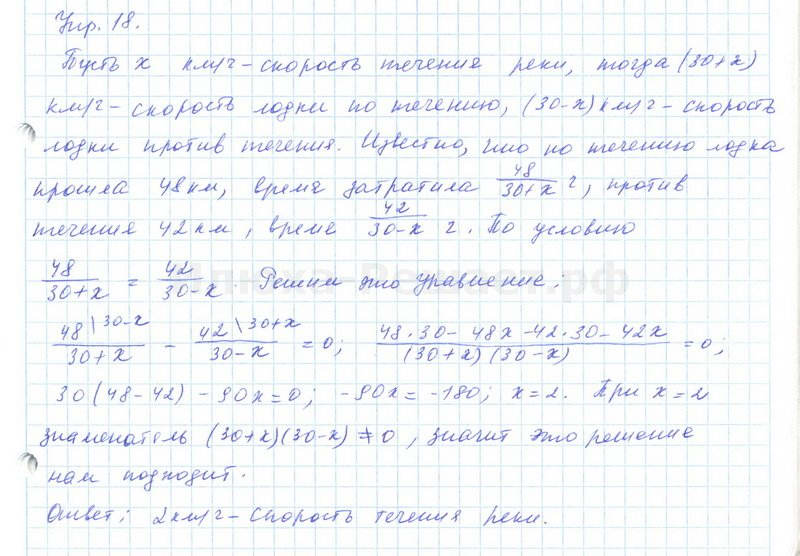 Упр. 18.
Пусть x км/ч – скорость течения реки, тогда (30+x)
км/ч – скорость лодки по течению, (30-x) км/ч – скорость
лодки против течения. Известно, что по течению лодка
прошла 48 км, время затратила 48/(30+x) ч, против
течения 42 км, время 42/(30-x) ч. По условию
48/(30+x) = 42/(30-x). Решим это уравнение:
48\30-x/(30+x) - 42\30+x/(30-x) = 0; (48·30 - 48x - 42·30 - 42x)/((30+x)(30-x)) = 0;
30(48-42) - 90x = 0; -90x = -180; x = 2. При x = 2
знаменатель (30+x)(30-x) ≠ 0, значит это решение
нам подходит.
Ответ: 2 км/ч – скорость течения реки.